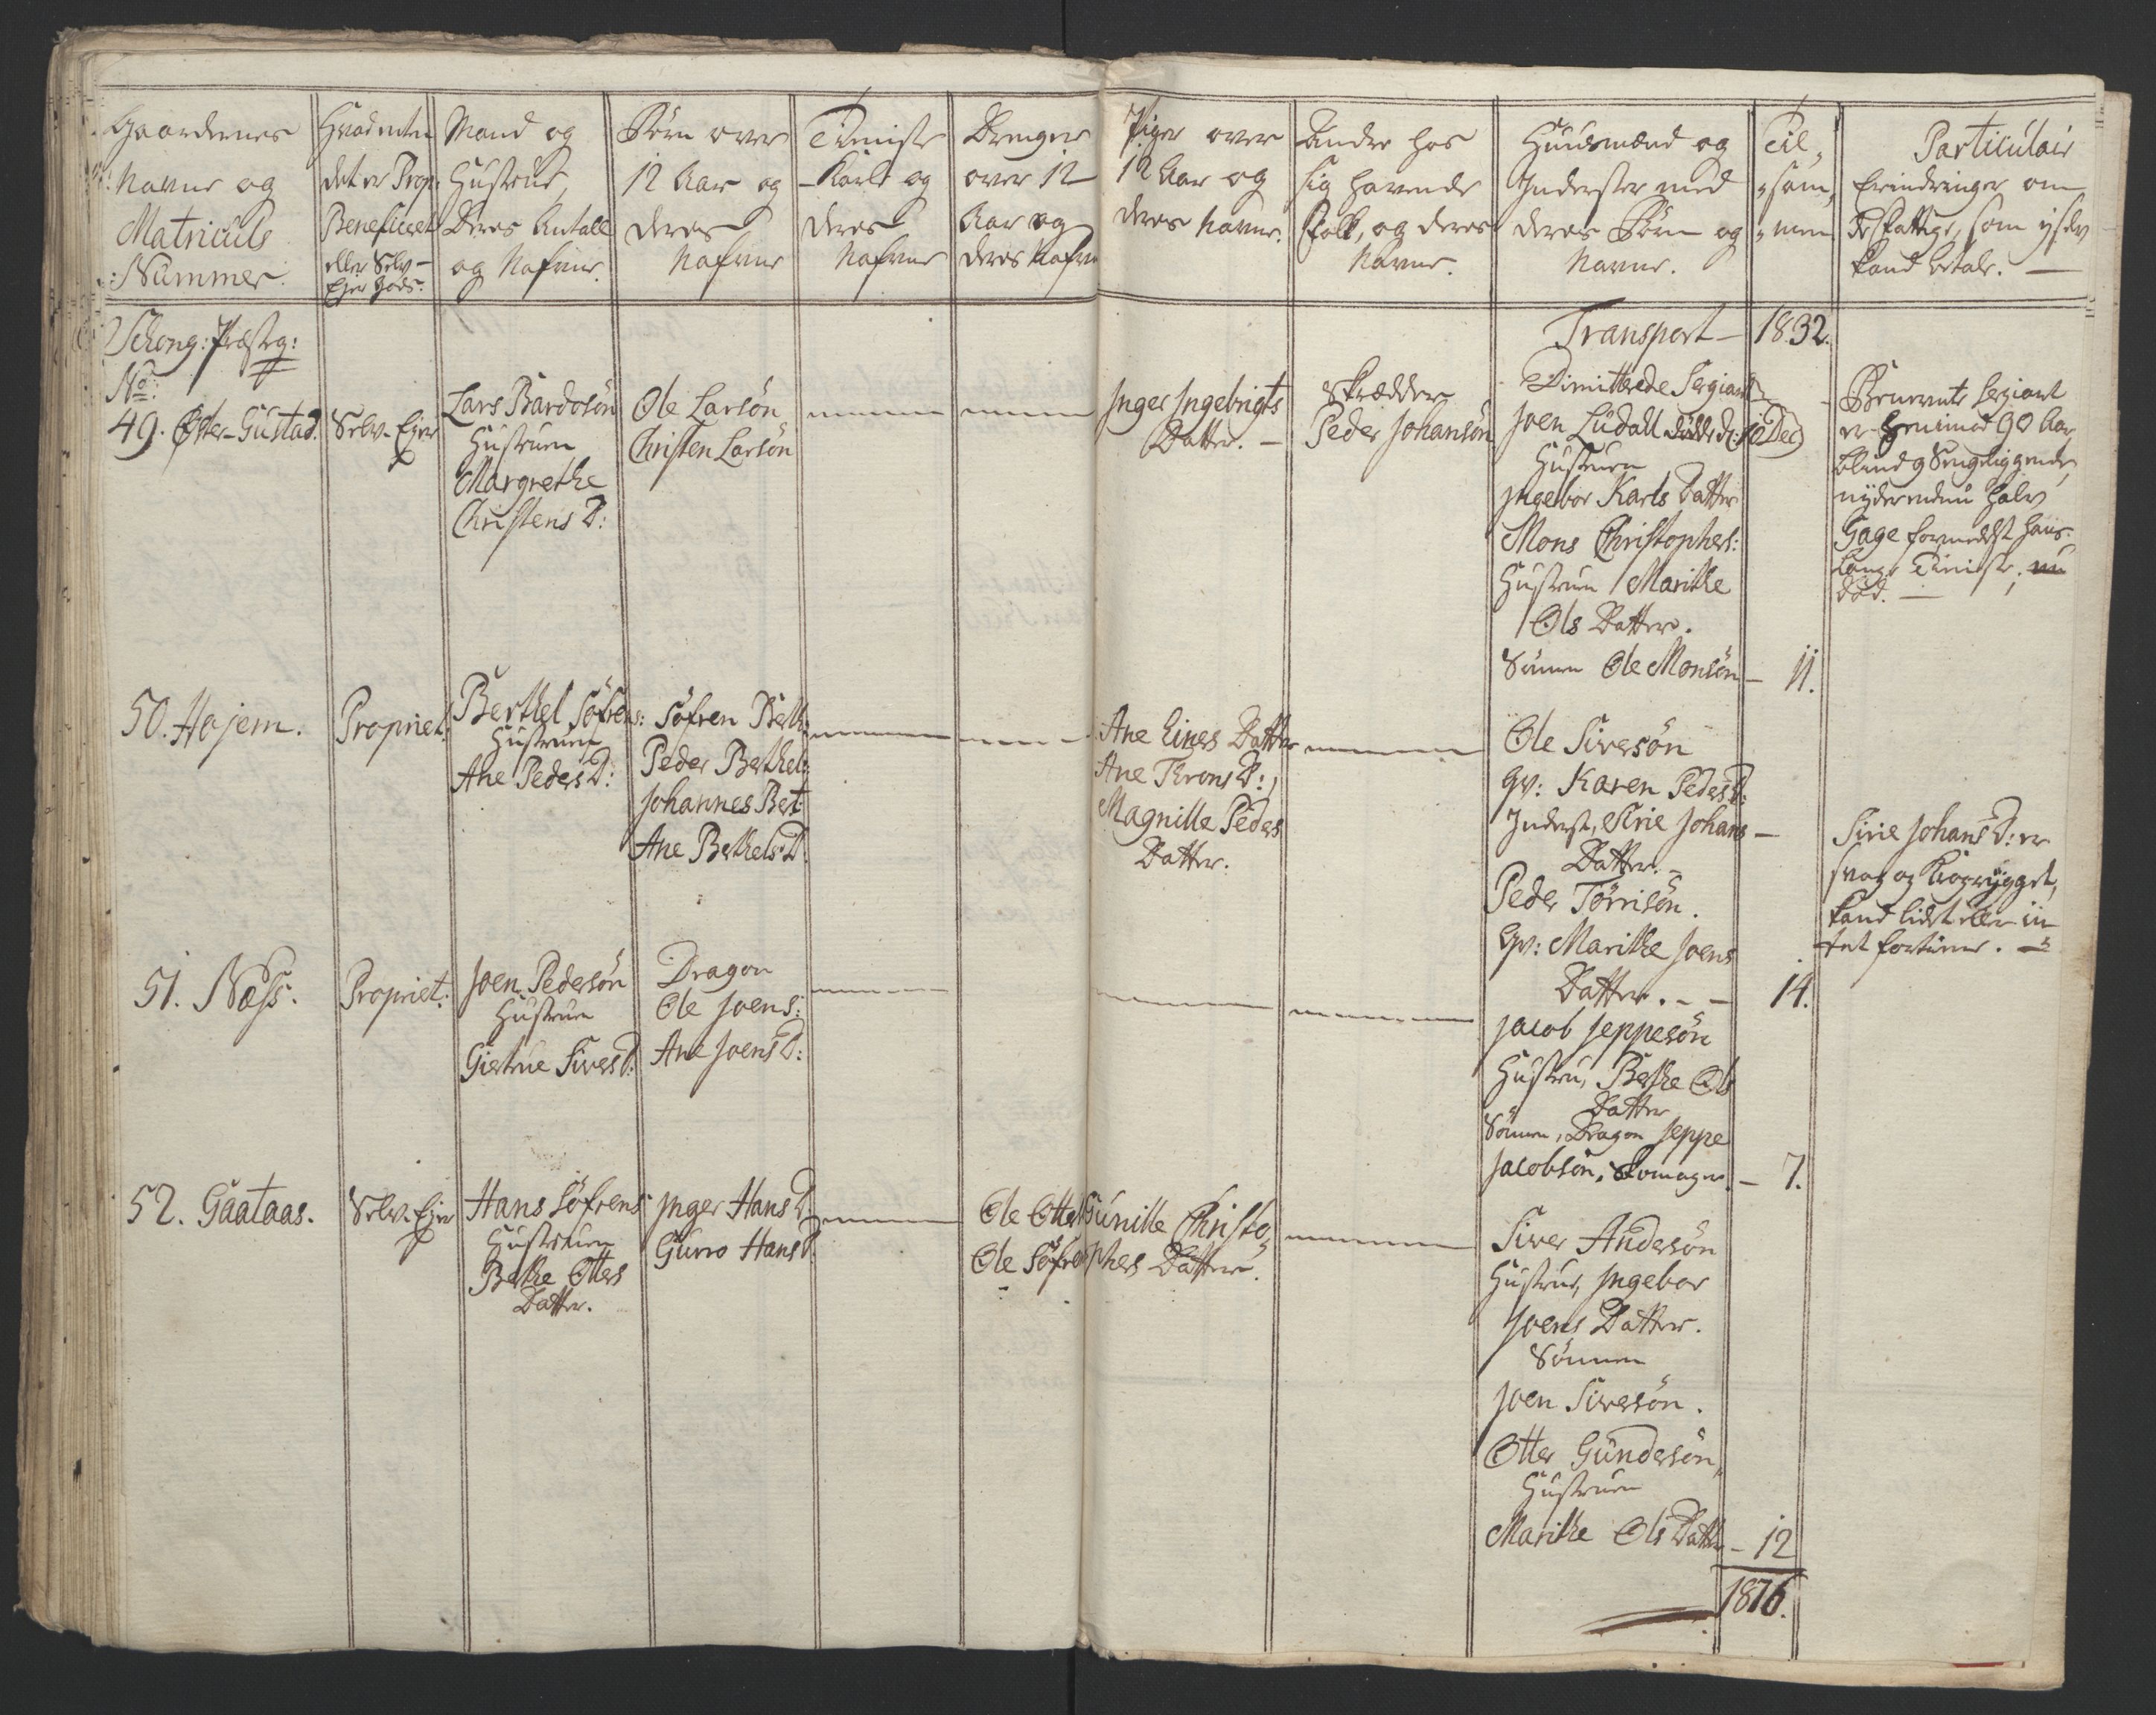 Gaardernes
Navne og
Matriculs
Nummer.
Hvad enten
det er Prop:
Beneficeret
eller Selv-
Ejer Gods.
Mand og
Hustrue,
Deres Antall
og Nafne
Børn over
12 Aar og
deres
Nafne
Tieniste
Karle og
deres
Nafne
Drenge
over 12
Aar og
deres Nafne
Piger over
12 Aar og
deres Navne.
Andre hos
sig havende
Folk, og deres
Navne.
Huusmænd og
Inderster med
deres Børn og
Navne.
Til-
sam-
men
Particulair
Erindringer om
de Fattige, som ej selv
kand betale. —
Schong: Præsteg:
Transport — 1832.
No:
49. Øster-Gustad.
Selv-Ejer
Lars Bardosøn
Hustruen
Margrethe
Christens D:
Ole Larsøn
Christen Larsøn
Inger Ingebrigts
Datter. —
Skrædder
Peder Johansøn
Dimitterede Sergiant
Joen Lüdall døde d: 12 Dec
Hustruen
Ingebor Karls Datter
Mons Christophers:
Hustruen Marithe
Ols Datter.
Sønnen Ole Monsøn — 11.
Benevnte Sergiant
er henimod 90 Aar
blind og Sengeliggende,
nyder endnu halv
Gage formedelst hans
lange Tieniste, nu
død. —
50. Hojem.
Propriet:
Berthel Søfrens:
Hustruen
Ane Peders D:
Søfren Berth:
Peder Berthels:
Johannes Bert:
Ane Berthels D:
Ane Eines Datter
Ane Trons D:,
Magnille Peders
Datter.
Ole Siversøn
qv: Karen Peders D:
Inderst, Sirie Johans —
Datter. —
Peder Tørrisøn.
Qv: Marithe Joens
Datter. — — 14.
Sirie Johans D: er
svag og Krogrygget,
kand lidet eller in-
tet fortiene. —
51. Næss.
Propriet:
Joen Pedersøn
Hustruen
Giertrue Sivers D:
Dragon
Ole Joens:
Ane Joens D:
Jacob Jeppesøn
Hustru, Berthe Ols
Datter
Sønnen, Dragon Jeppe
Jacobsøn, Skomager. — 7.
52. Gaataas.
Selv-Ejer
Hans Søfrens:
Hustruen
Berthe Otters
Datter.
Inger Hans D:
Guro Hans D:
Ole Otters
Ole Søfre
Gunille Christo-
phers Datter.
Siver Andersøn
Hustrue, Ingebor
Joens Datter.
Sønnen
Joen Siversøn.
Otter Gundersøn,
Hustruen
Marithe Ols Datter — 12
1876.